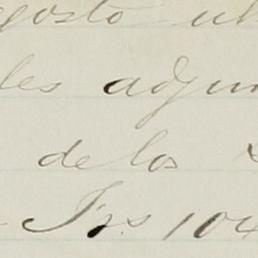 agosto ul
les adjun
de los
Frs 104